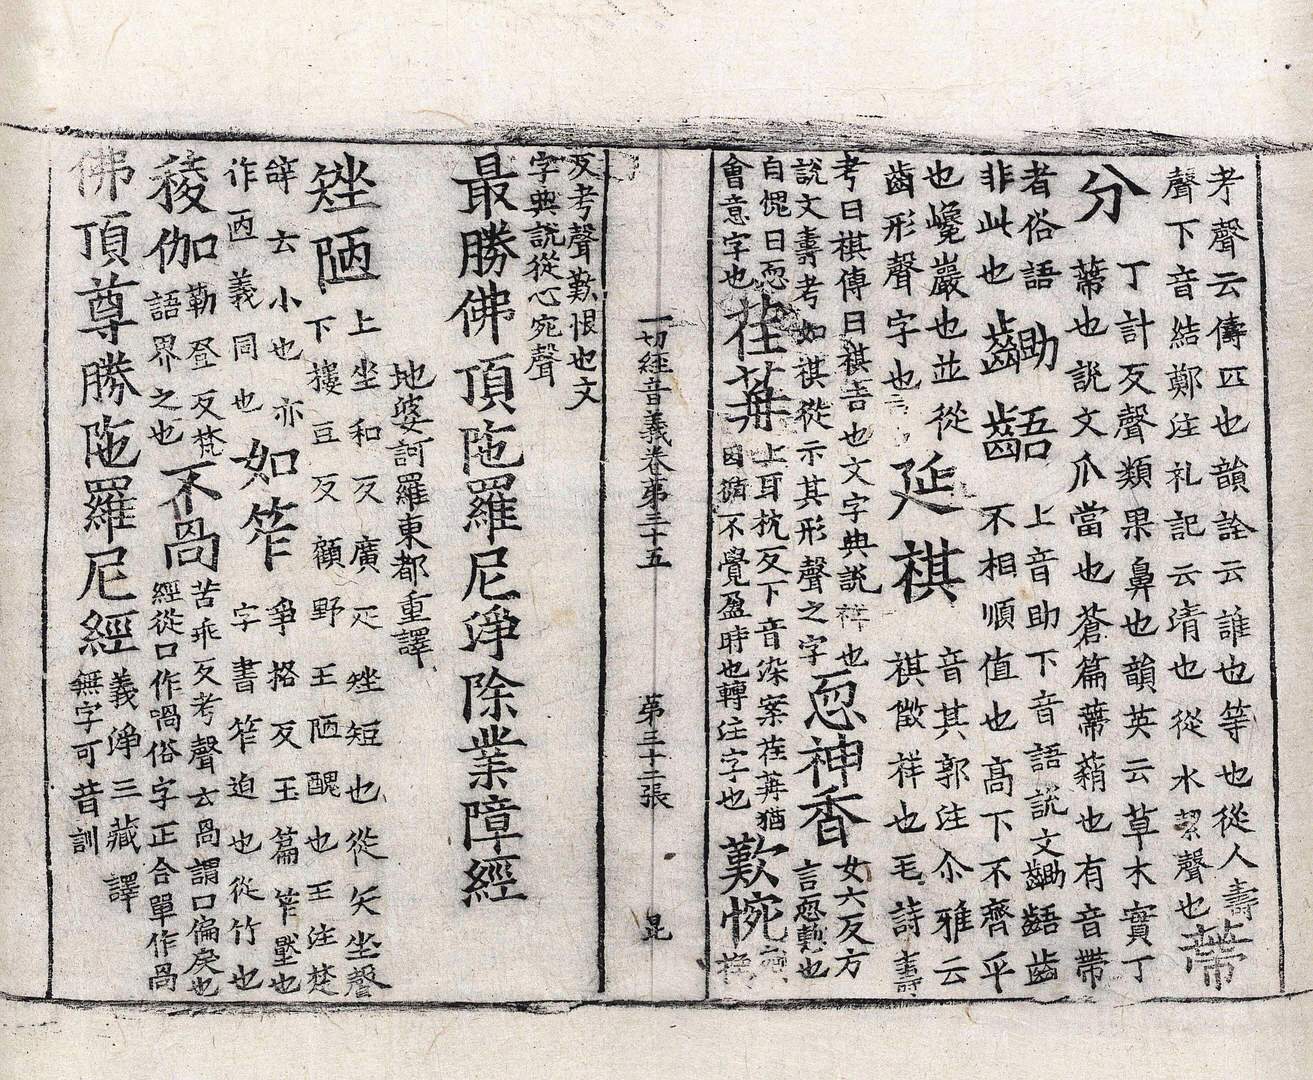 考聲云儔匹也韻詮云誰也等也從人壽
聲下音結鄭注礼記云清也從水絜聲也蔕
分丁計反聲類果鼻也韻英云草木實丁
蔕也說文爪當也蒼篇蔕蘱也有音帶
者俗語
非此也
齟齬上音助下音語說文齟齬齒
不相順值也高下不齊平
也巉巖也並從
齒形聲字也
延祺音其郭注尒雅云
祺徵祥也毛詩壽
考曰祺傳曰祺吉也文字典說祥也
說文壽考如祺從示其形聲之字
恧神香女六反方
言恧慙也
自愧曰恧
會意字也
荏苒上耳枕反下音染案荏苒猶
因循不覺盈時也轉注字也
歎惋
一切經音義卷第三十五 第三十二張 昆
反考聲歎恨也文
字典說從心宛聲
最勝佛頂陁羅尼淨除業障經
地婆訶羅東都重譯
矬陋上坐和反廣疋矬短也從矢坐聲
下樓豆反顧野王陋醜也王注楚
辝云小也亦
如笮爭格反玉篇笮壓也
作𠧱義同也
字書笮迫也從竹也
稜伽勒登反梵
語界之也
不咼苦乖反考聲云咼謂口偏戾也
經從口作喎俗字正合單作咼
佛頂尊勝陁羅尼經義淨三藏譯
無字可音訓